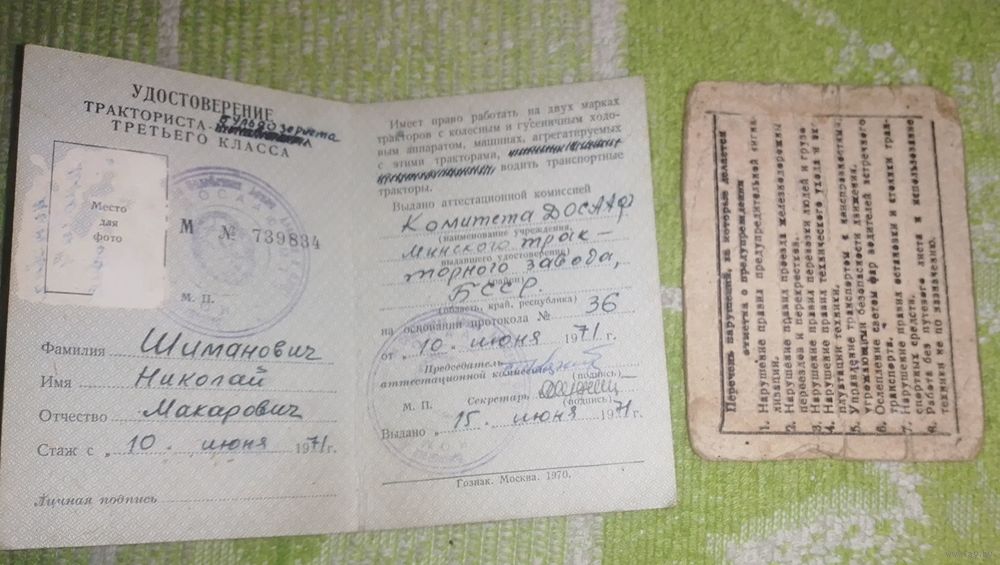 УДОСТОВЕРЕНИЕ
ТРАКТОРИСТА-бульдозериста
ТРЕТЬЕГО КЛАССА
Место
для
фото
М № 739834
М. П.
Фамилия Шиманович
Имя Николай
Отчество Макарович
Стаж с „10 июня 1971 г.
Личная подпись
Имеет право работать на двух марках
тракторов с колесным и гусеничным ходо-
вым аппаратом, машинах, агрегатируемых
с этими тракторами,
водить транспортные
тракторы.
Выдано аттестационной комиссией
Комитета ДОСААФ
(наименование учреждения,
Минского трак-
выдавшего удостоверение)
торного завода,
(район)
БССР.
(область, край, республика)
на основании протокола № 36
от „10. июня 1971 г.
Председатель
аттестационной комиссии
(подпись)
М. П. Секретарь
(подпись)
Выдано „15. июня 1971 г.
Гознак. Москва. 1970.
Перечень нарушений, за которые делается
отметка о предупреждении
1. Нарушение правил предупредительной сигна-
лизации.
2. Нарушение правил проезда железнодорожных
переездов и перекрестков.
3. Нарушение правил перевозки людей и груза
4. Нарушение правил технического ухода и экс-
плуатации техники.
5. Управление транспортом с неисправностями,
угрожающими безопасности движения.
6. Ослепление светом фар водителей встречного
транспорта.
7. Нарушение правил остановки и стоянки тран-
спортных средств.
8. Работа без путевого листа и использование
техники не по назначению.